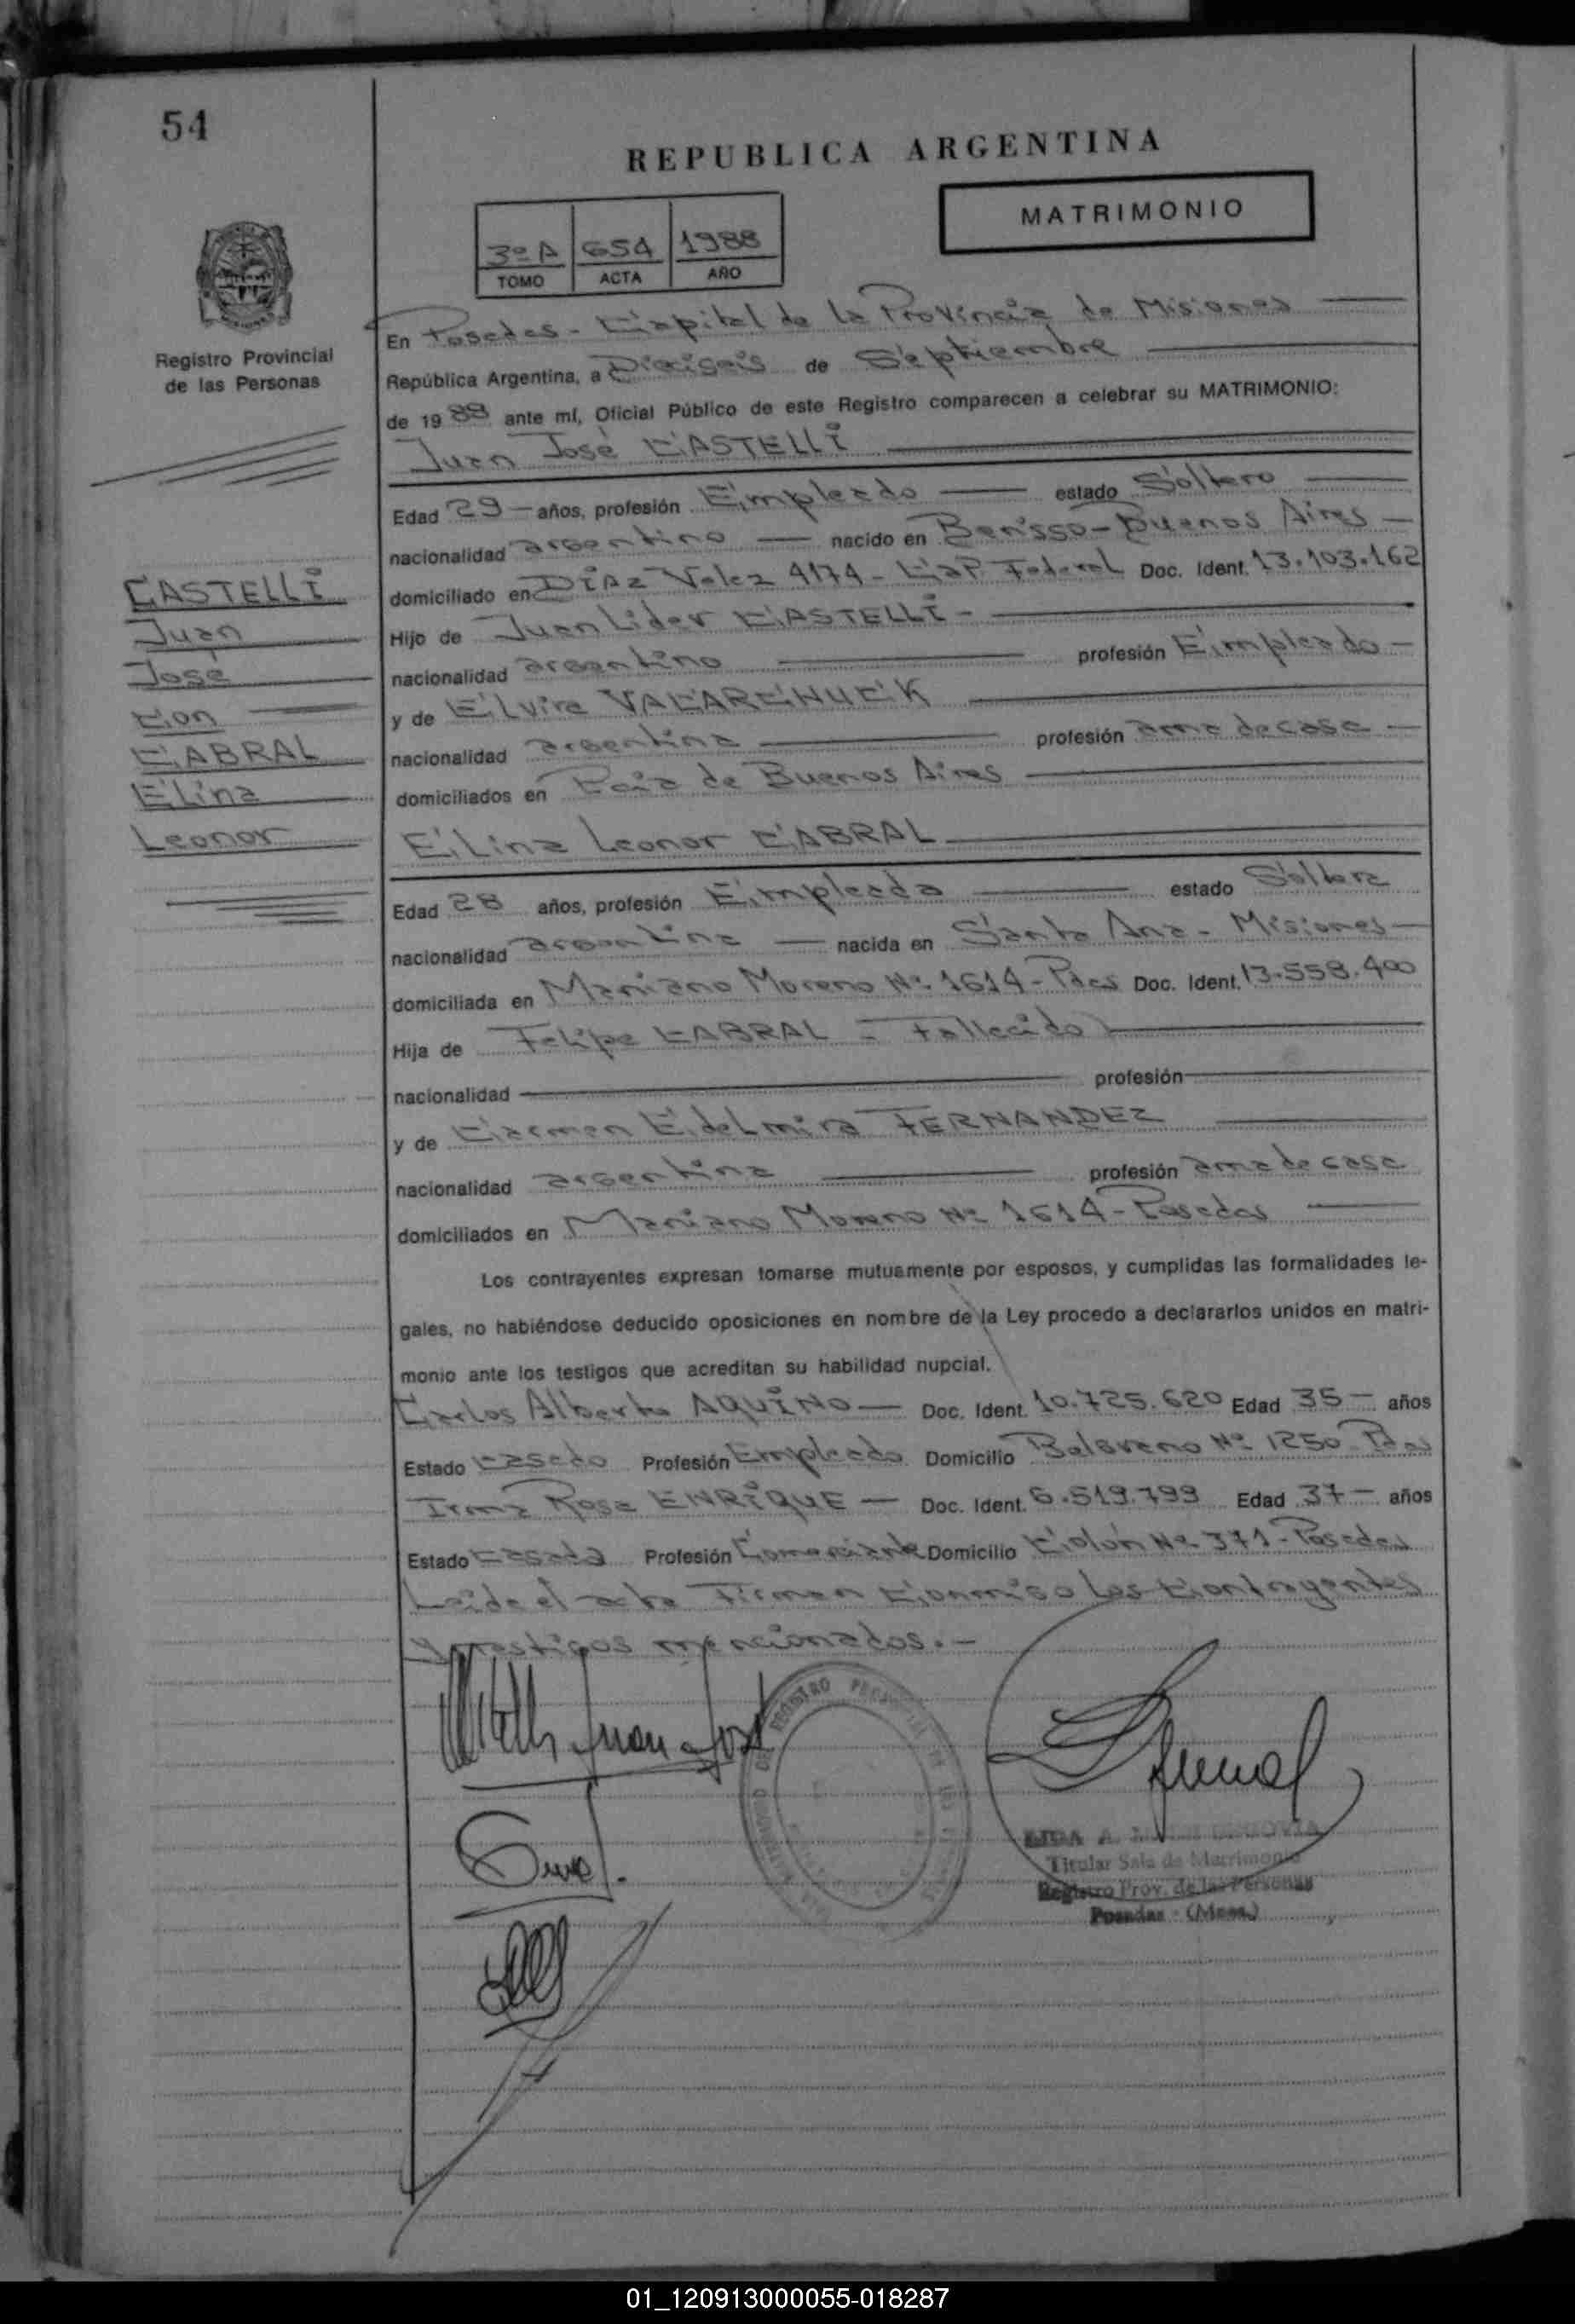 54
REPUBLICA ARGENTINA
MATRIMONIO
3º A 654 1988
TOMO ACTA AÑO
Registro Provincial
de las Personas
En Posadas - Capital de la Provincia de Misiones
República Argentina, a Dieciseis de Septiembre
de 1988 ante mí, Oficial Público de este Registro comparecen a celebrar su MATRIMONIO:
Juan José CASTELLI
Edad 29 años, profesión Empleado estado Soltero
nacionalidad argentino nacido en Berisso - Buenos Aires
domiciliado en Diaz Velez 4174 - Cap. Federal Doc. Ident. 13.103.162
Hijo de Juan Lider CASTELLI -
nacionalidad argentino profesión Empleado
y de Elvira
nacionalidad argentina profesión ama de casa
domiciliados en Pcia de Buenos Aires
Elina Leonor CABRAL
Edad 28 años, profesión Empleada estado Soltera
nacionalidad argentina nacida en Santa Ana - Misiones
domiciliada en Mariano Moreno Nº 1614 - Pdas Doc. Ident. 13.558.400
Hija de Felipe CABRAL - Fallecido
nacionalidad profesión
y de Carmen Edelmira FERNANDEZ
nacionalidad argentina profesión ama de casa
domiciliados en Mariano Moreno Nº 1614 - Posadas
CASTELLI
Juan
José
Con
CABRAL
Elina
Leonor
Los contrayentes expresan tomarse mutuamente por esposos, y cumplidas las formalidades le-
gales, no habiéndose deducido oposiciones en nombre de la Ley procedo a declararlos unidos en matri-
monio ante los testigos que acreditan su habilidad nupcial.
Carlos Alberto AQUINO Doc. Ident. 10.725.620 Edad 35 años
Estado Casado Profesión Empleado Domicilio Nº 1250 Pdas
Irma Rosa ENRIQUE Doc. Ident. 6.519.799 Edad 37 años
Estado Casada Profesión Comerciante Domicilio Colón Nº 371 - Posadas
Leida el acta Firman Conmigo Los Contrayentes
y testigos mencionados. -
Juan José
Titular Sala de Matrimonio
Registro Prov. de las Personas
Posadas - (Mnes.)
01_120913000055-018287